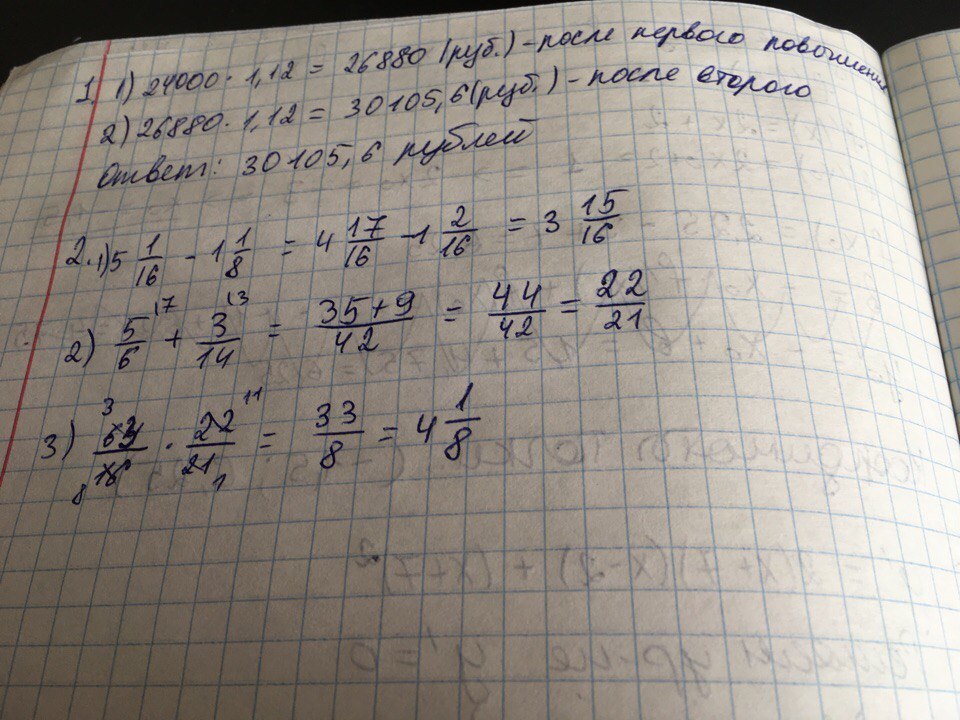 1. 1) 24000 · 1,12 = 26880 (руб.) - после первого повышения
2) 26880 · 1,12 = 30105,6 (руб.) - после второго
Ответ: 30105,6 рублей
2. 1) 5 1/16 - 1 1/8 = 4 17/16 - 1 2/16 = 3 15/16
2) 5/6 \7 + 3/14 \3 = 35+9/42 = 44/42 = 22/21
3) 63 3/16 8 · 22 11/21 1 = 33/8 = 4 1/8